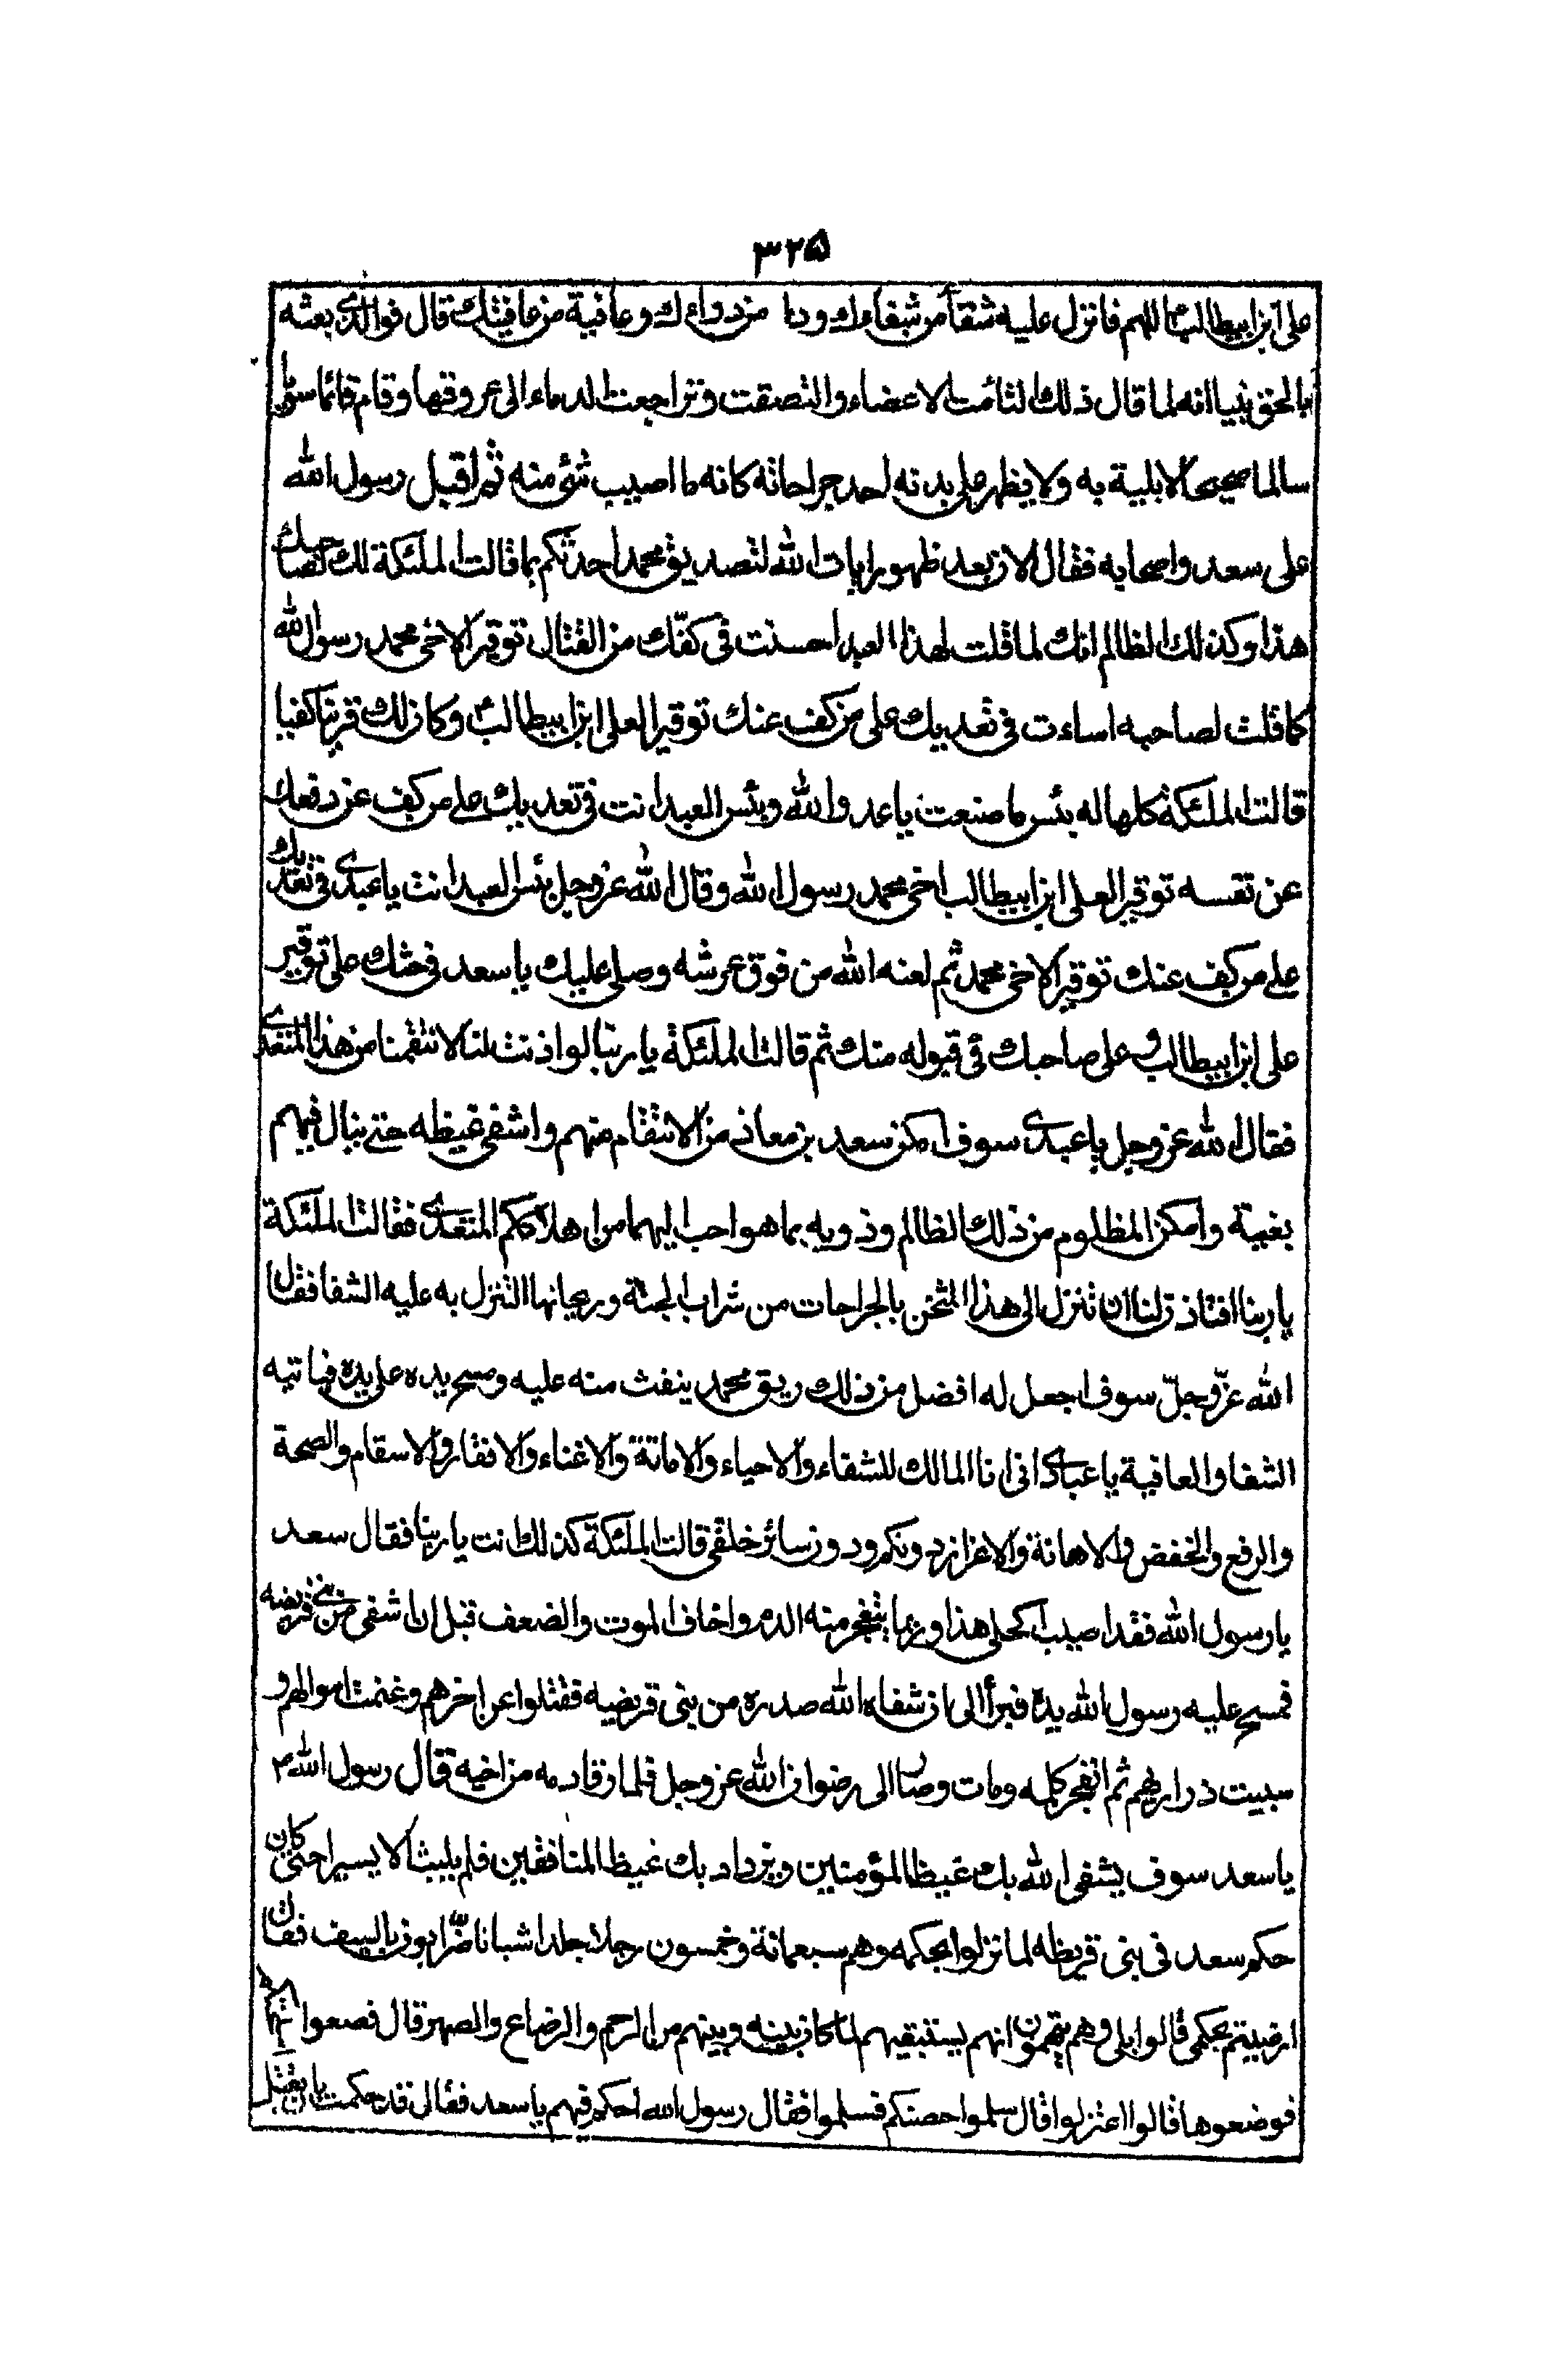 ۳۲۵
على ابن ابيطالب اللهم فانزل عليه شفآء من شفاءك ودواء من دواءك وعافية من عافيتك قال فوالذى بعثه
بالحق نبيا انه لما قال ذلك التأمت الاعضاء والتصقت وتراجعت الدماء الى عروقها وقام قائما سويا
سالما صحيحا لا بلية به ولا يظهر على بدنه احد جراحاته كانه ما اصيب شئ منه ثم اقبل رسول الله
على سعد واصحابه فقال الان بعد ظهور ايات الله لتصديق محمد احدثكم بما قالت الملئكة لك لصاحبك
هذا وكذلك الظالم انك لما قلت لهذا العبد احسنت فى كفّك من القتال توقيرا لاخى محمد رسول الله
كما قلت لصاحبه اساءت فى تعديك على من كف عنك توقيرا لعلى ابن ابيطالب وكان لك قرينا كفيا
قالت الملئكة كلها له بئس ما صنعت يا عدو الله وبئس العبد انت فى تعديك على من كف عن دفعك
عن نفسه توقيرا لعلى ابن ابيطالب اخى محمد رسول الله وقال الله عز وجل بئس العبد انت يا عبدى فى تعديك
على من كف عنك توقيرا لاخى محمد ثم لعنه الله من فوق عرشه وصلى عليك يا سعد فى حثك على توقير
على ابن ابيطالب وعلى صاحبك فى قبوله منك ثم قالت الملئكة يا ربنا لو اذنت لنا لانتقمنا من هذا المتعدى
فقال الله عز وجل يا عبدى سوف امكن سعد بن معاذ من الانتقام منهم واشفى غيظه حتى ينال فيهم
بغيته وامكن المظلوم من ذلك الظالم وذويه بما هو احب اليهما من اهلاككم المتعدى فقالت الملئكة
يا ربنا افتاذن لنا ان ننزل الى هذا المثخن بالجراحات من شراب الجنة وريحانها لتنزل به عليه الشفا فقال
الله عزّ وجلّ سوف اجعل له افضل من ذلك ريق محمد ينفث منه عليه ومسح يده على يده فياتيه
الشفا والعافية يا عبادى انى انا المالك للشفاء والاحياء والاماتة والاغناء والافقار والاسقام والصحة
والرفع والخفض والاهانة والاعزاز دونكم ودون سائر خلقى قالت الملئكة كذلك انت يا ربنا فقال سعد
يا رسول الله فقد اصيب اكحلى هذا وربما يتفجر منه الدم واخاف الموت والضعف قبل ان اشفى من بنى قريضه
فمسح عليه رسول الله يده فبرأ الى ان شفاه الله صدره من بنى قريضيه فقتلوا عن اخرهم وغنمت اموالهم و
سبيت ذراريهم ثم انفجر كلمه ومات وصار الى رضوان الله عز وجل فلما رقا دمه من اخيه قال رسول الله ص
يا سعد سوف يشفى الله بك غيظ المؤمنين ويزداد بك غيظ المنافقين فلم يلبث الا يسيرا حتى كان
حكم سعد فى بنى قريظه لما نزلوا بحكمه وهم سبعمائة وخمسون رجلا جلدا شبانا ضرابون بالسيف فقال
ارضيتم بحكمى قالوا بلى وهم يتوهمون انهم يستبقيهم لما كان بينه وبينهم من الرحم والرضاع والصهر قال فضعوا
فوضعوها قالوا اعتزلوا قال سلموا حصنكم فسلموا فقال رسول الله احكم فيهم يا سعد فقال قد حكمت بان يقتل